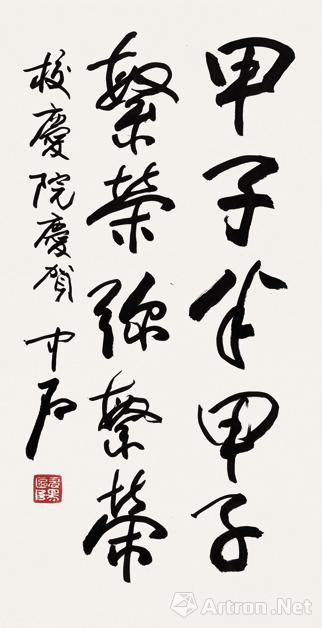 甲子半甲子
繁榮弥繁榮
校慶院慶賀 中石
Artron.Net